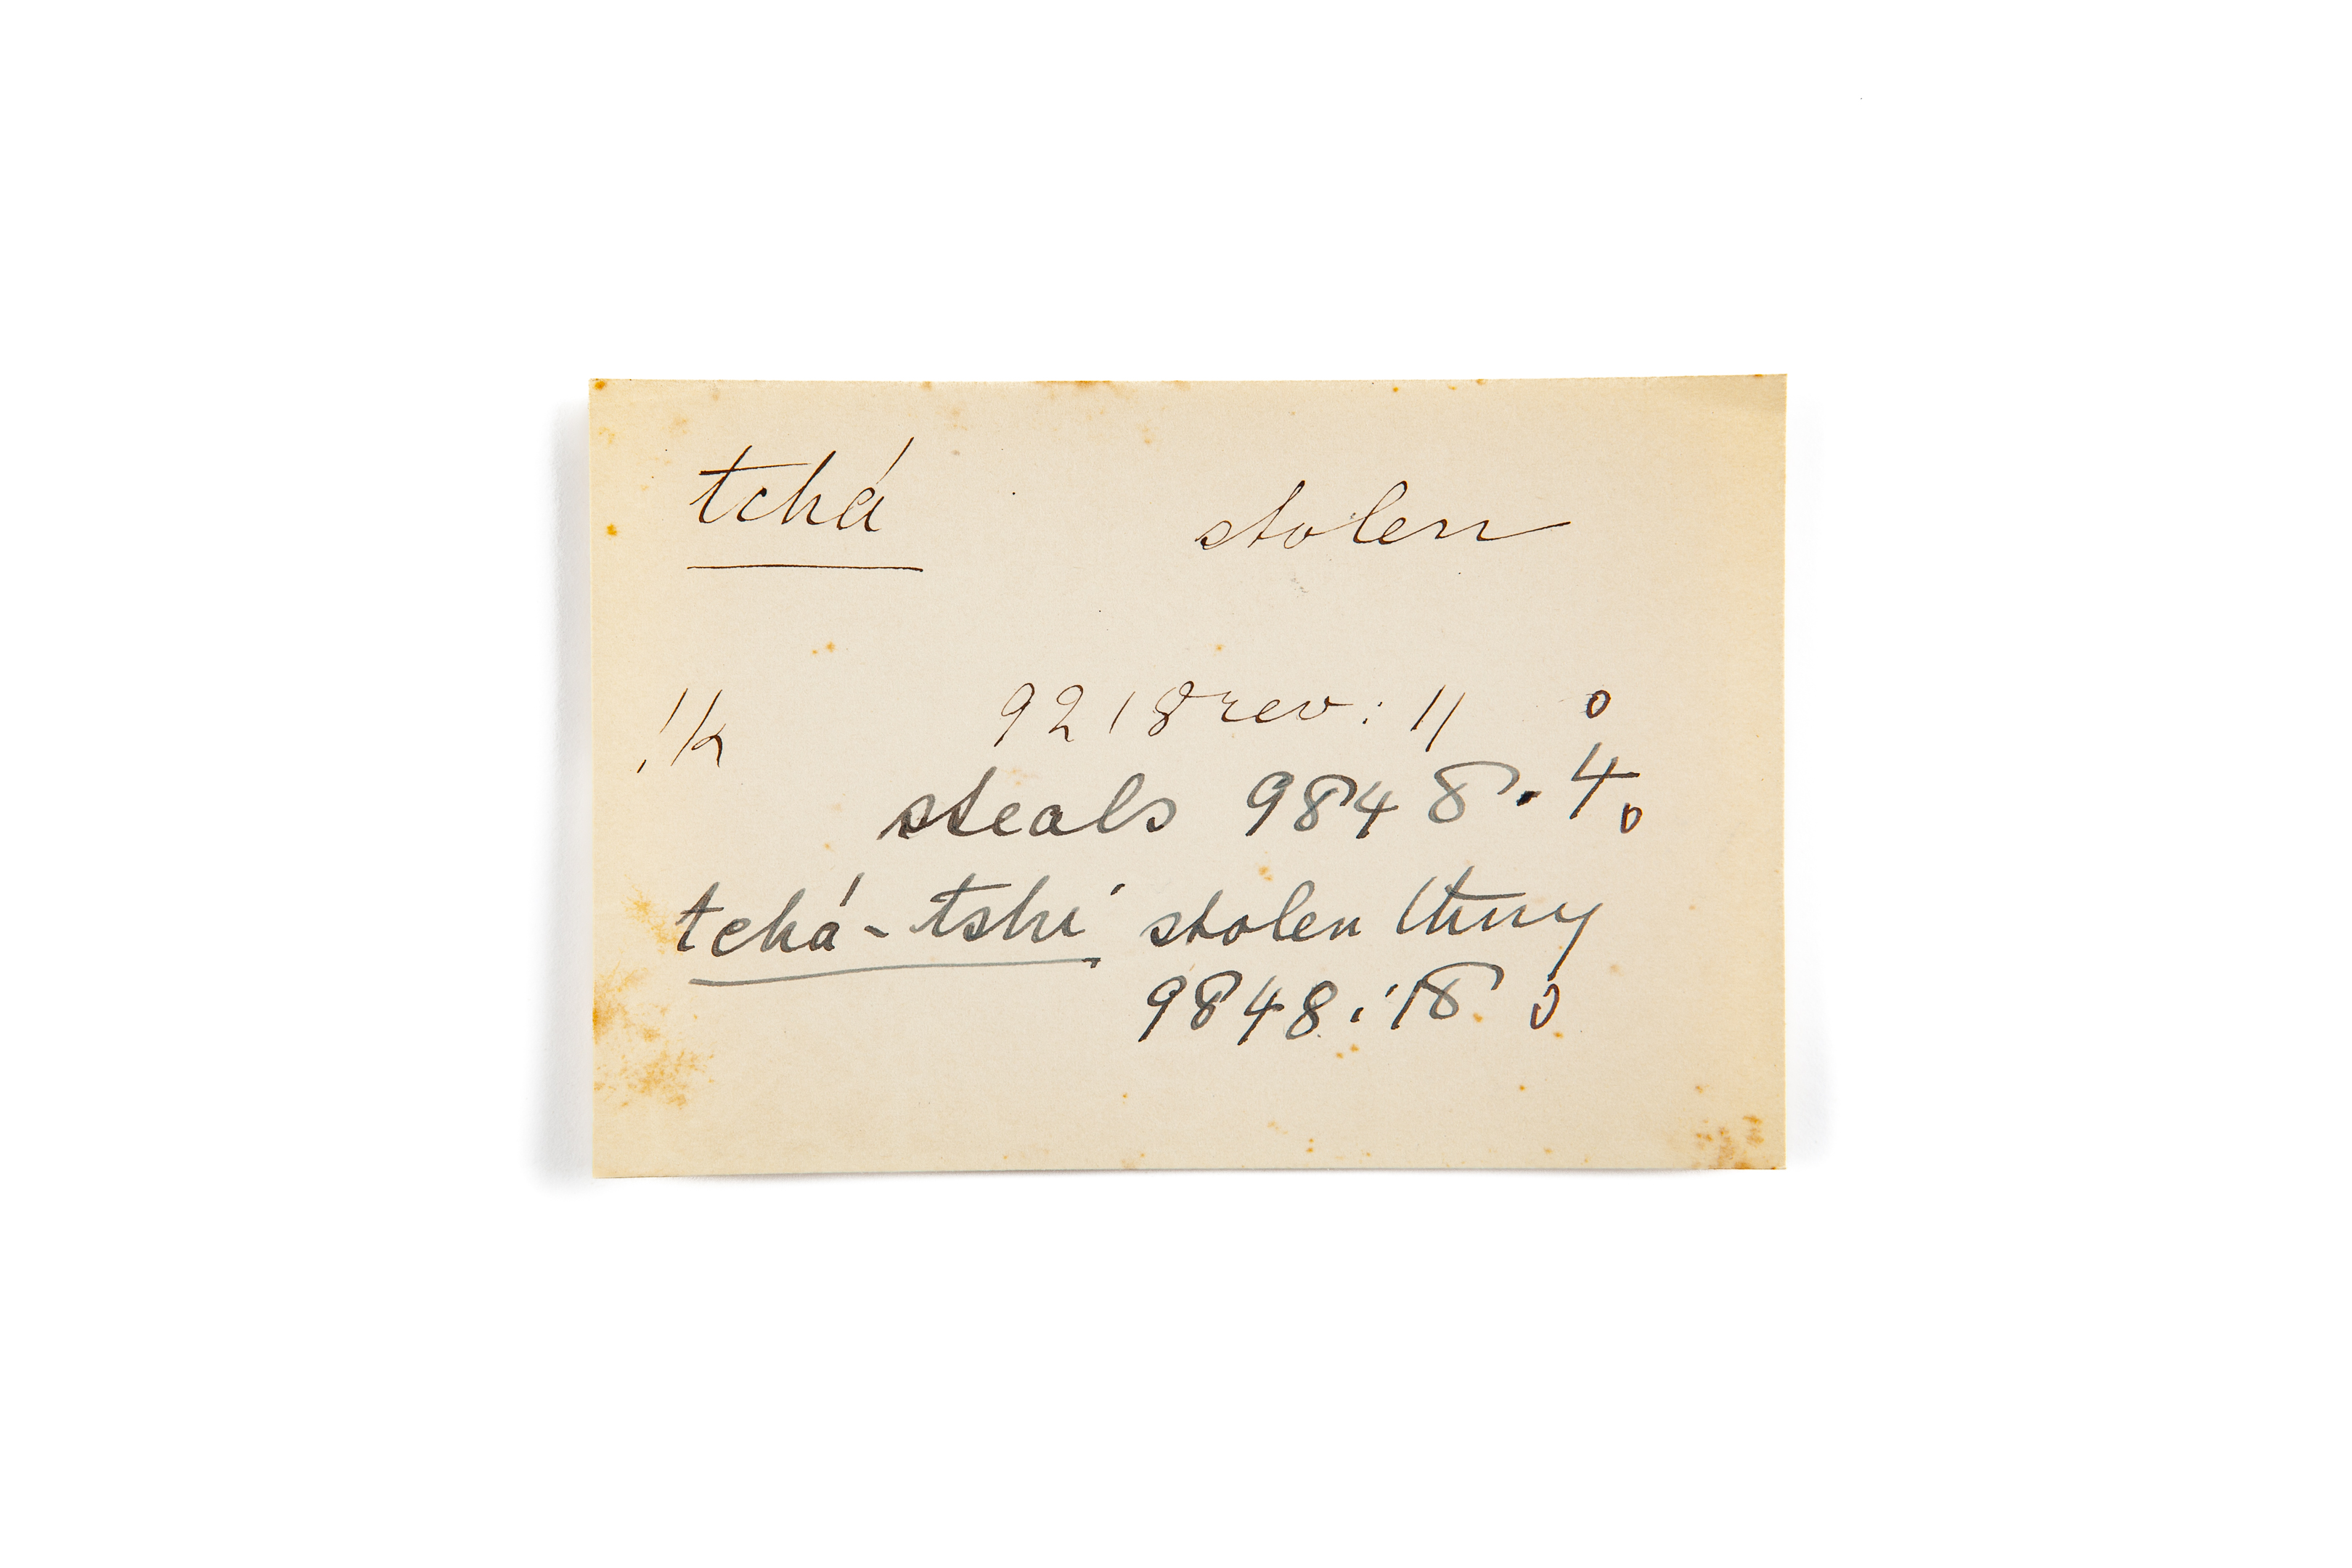 tchá stolen
!k 9218 rev: 11 o
steals 9848. 4. o
tchá-tshi stolen thing
9848: 18 o